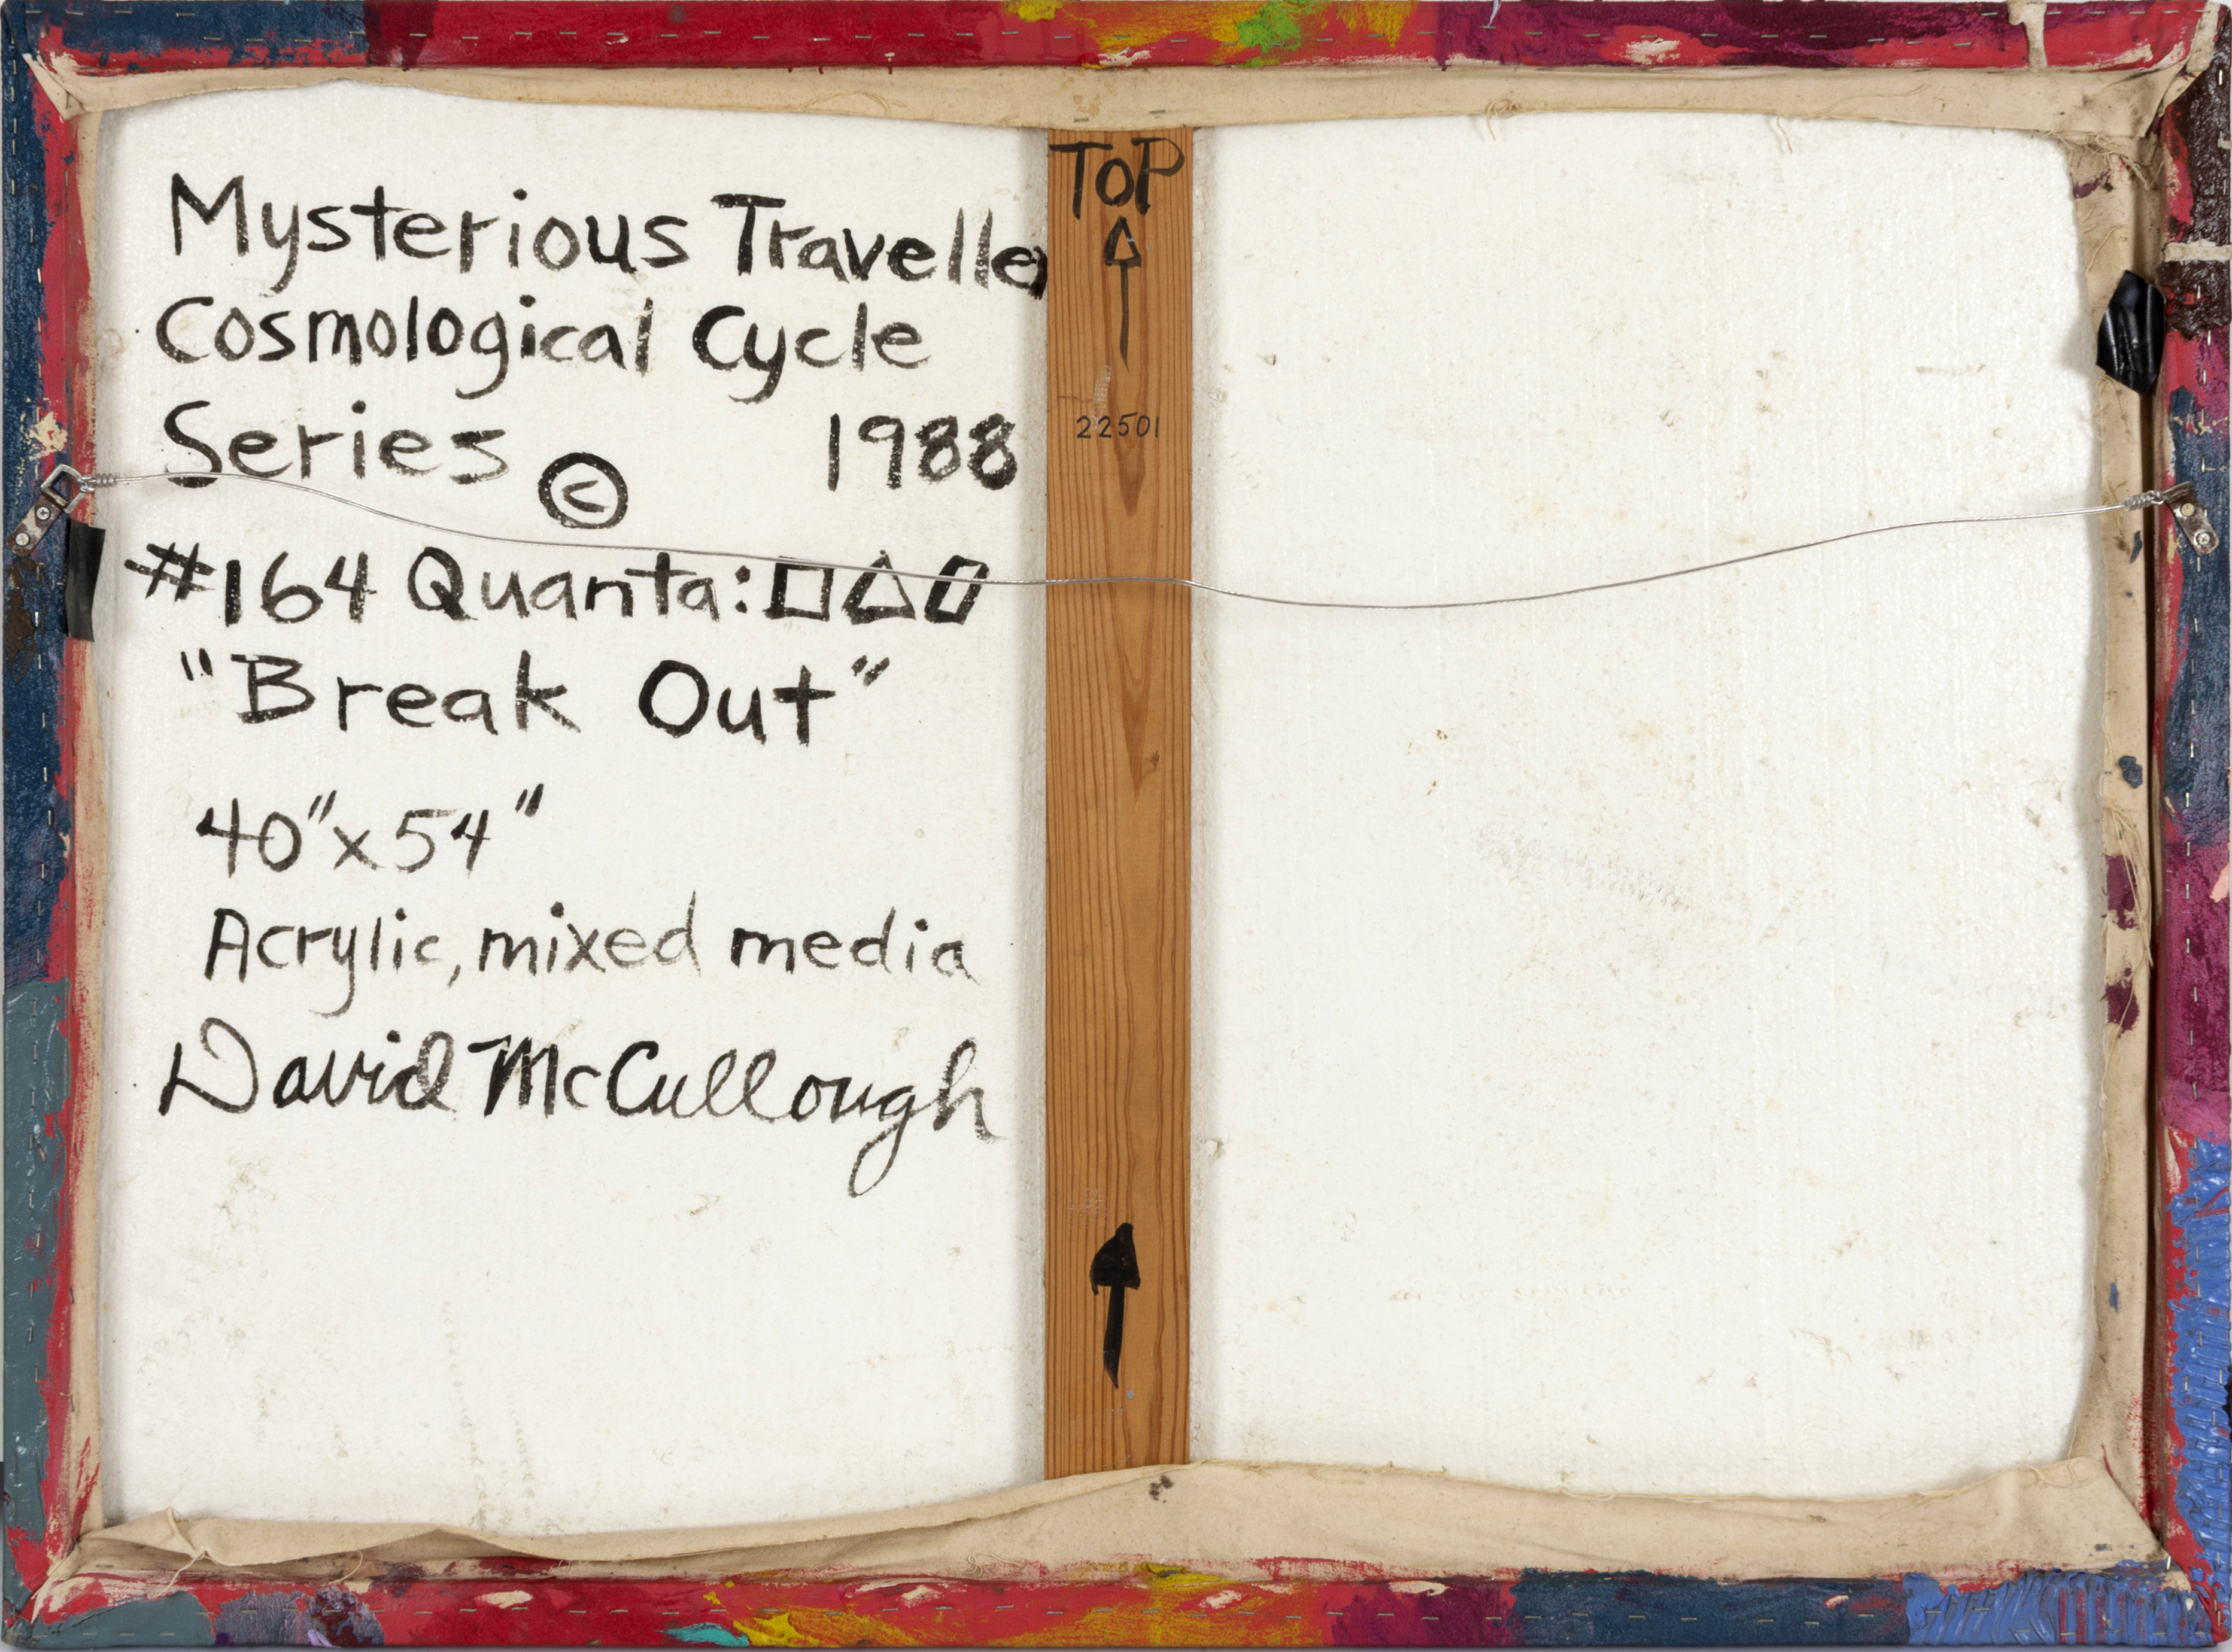 Mysterious Traveller
Cosmological Cycle
Series © 1988
#164 Quanta: □△▱
"Break Out"
40"x54"
Acrylic, mixed media
David McCullough
TOP
22501